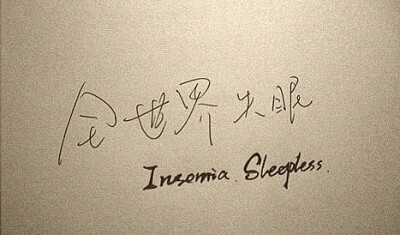 全世界失眠
Insomia. Sleepless.